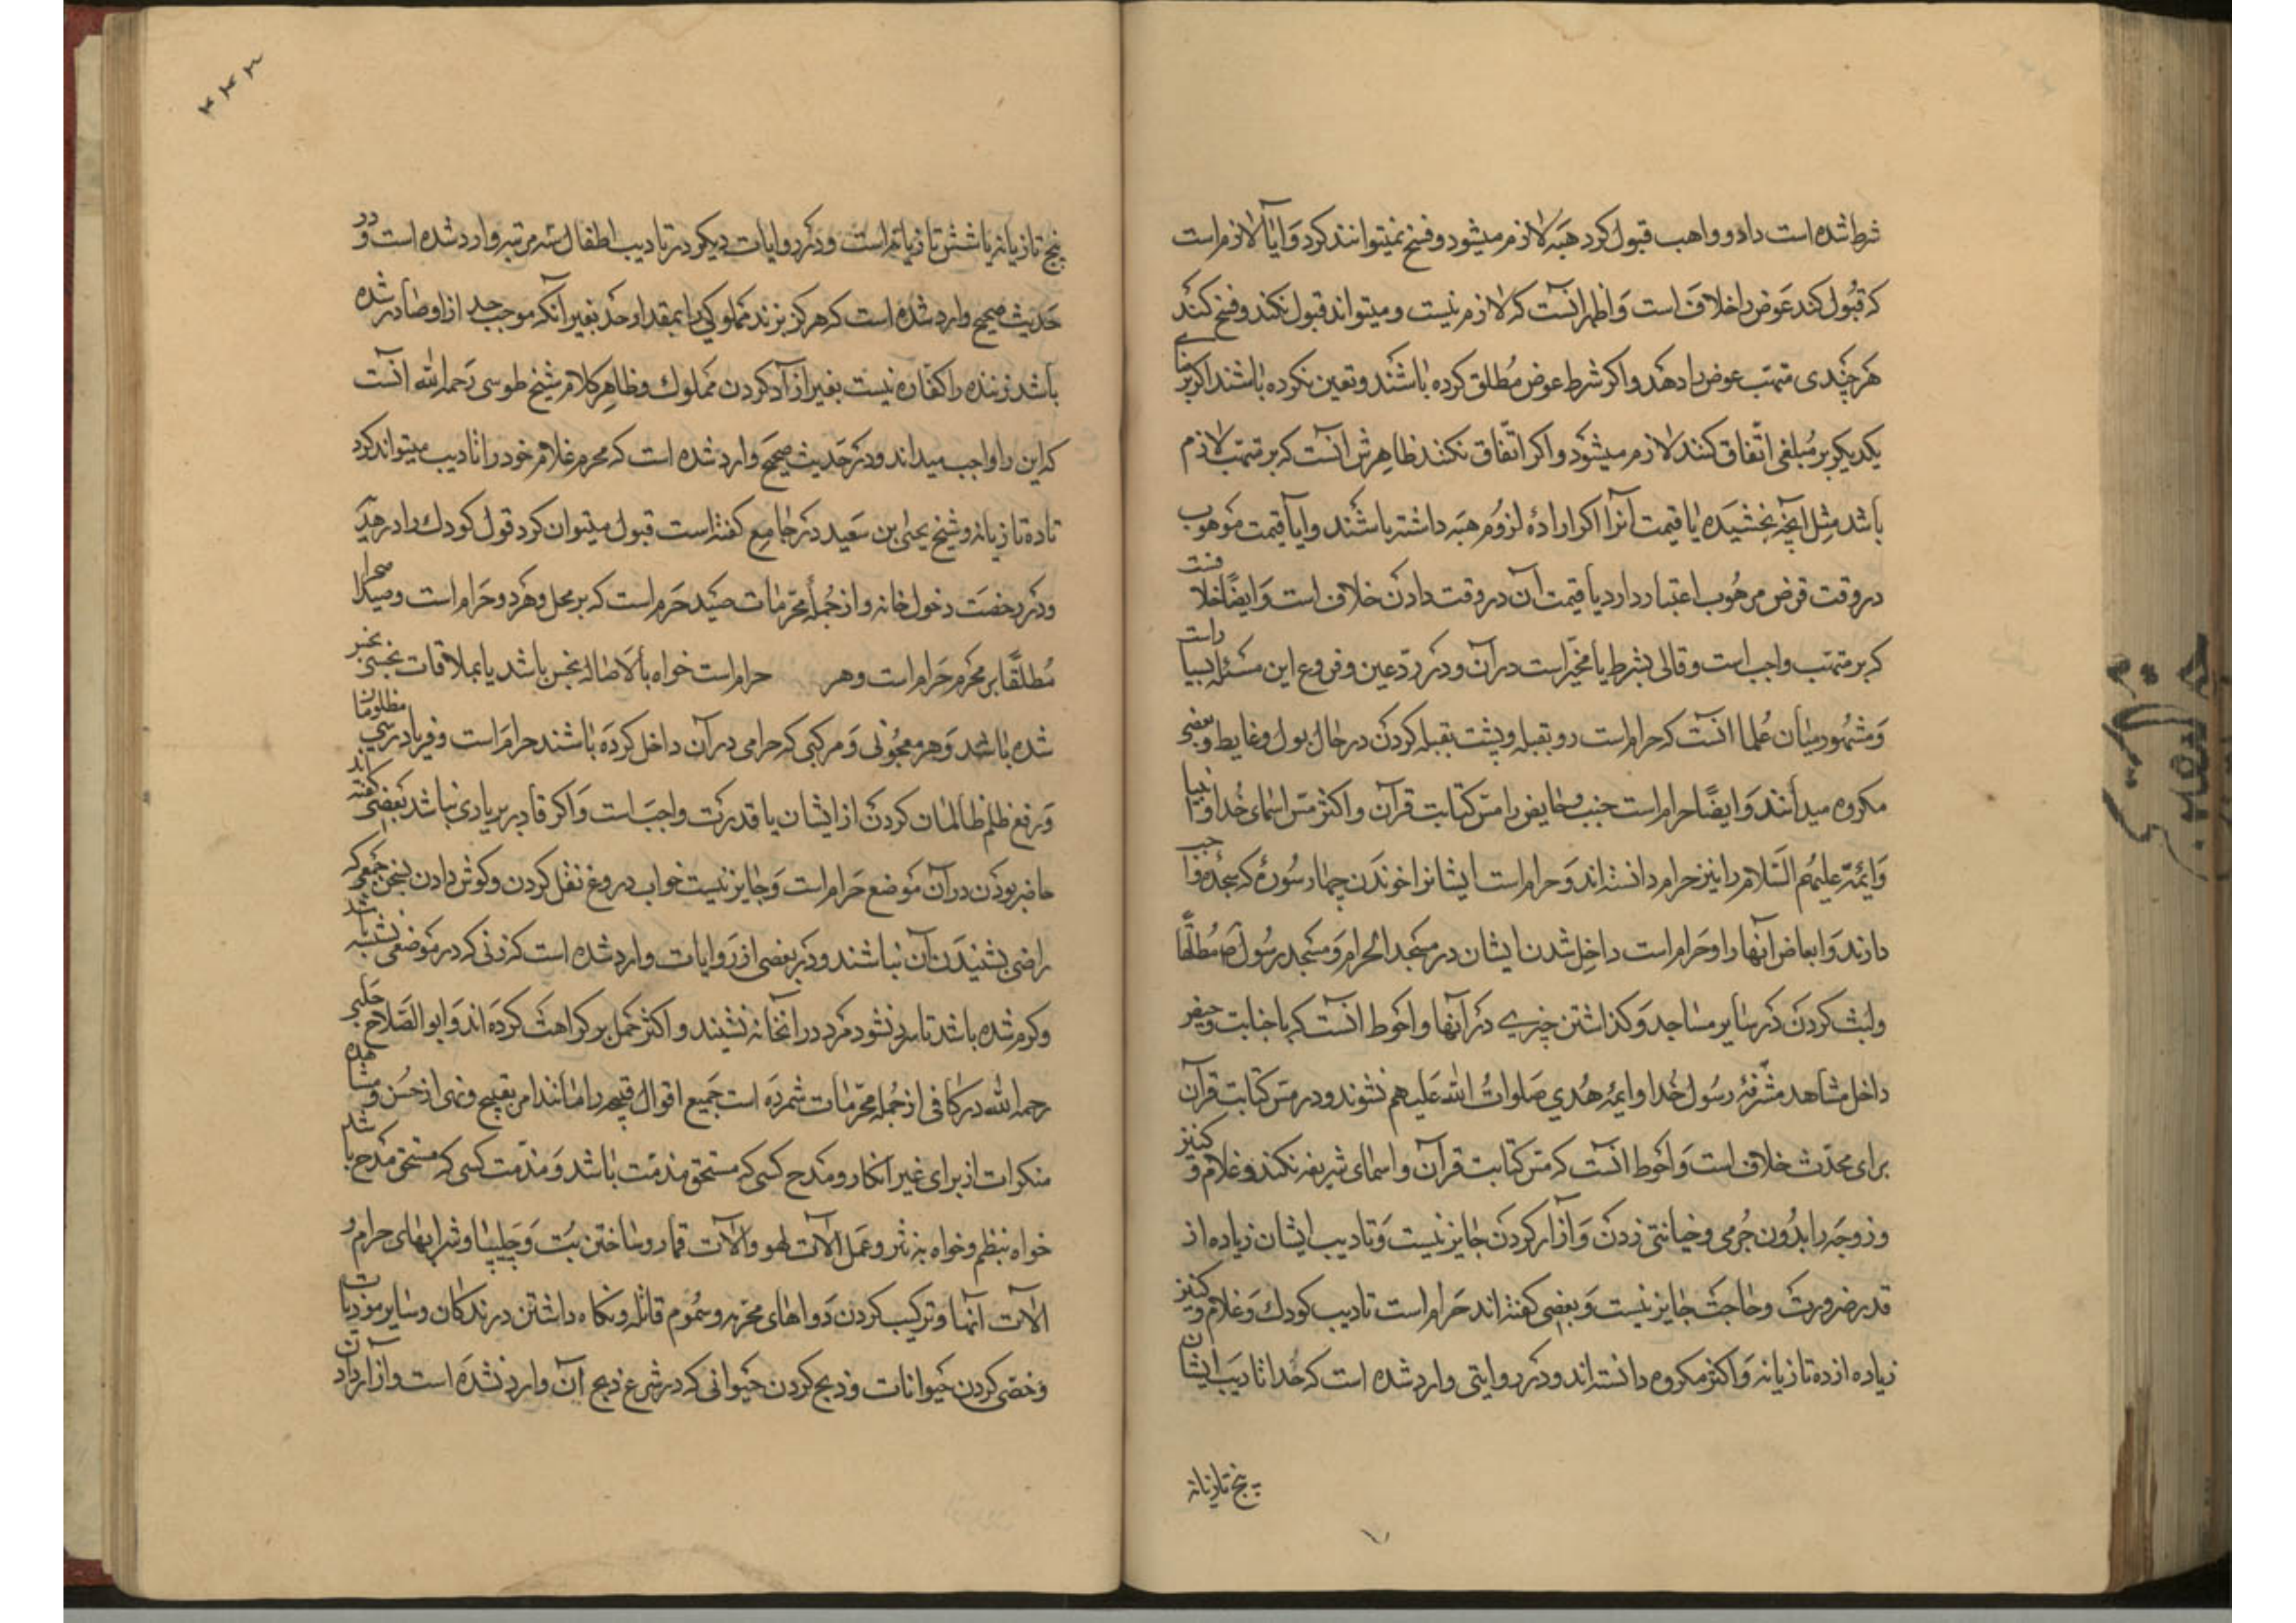 شرط شده است داد و واهب قبول کرد هبه لازم میشود و فسخ نمیتوانند کرد و ایا لازم است
که قبول کند عوض را خلافست و اظهر آنست که لازم نیست و میتواند قبول نکند و فسخ کند
هر چندی متهب عوض را دهد و اکر شرط عوض مطلق کرده باشند و تعین نکرده باشند اکر بنای
یکدیکر بر مبلغی اتفاق کنند لازم میشود و اکر اتفاق نکنند ظاهرش آنست که بر متهب لازم
باشد مثل آنچه بخشیده یا قیمت آنرا اکر اراده لزوم هبه داشته باشند و ایا قیمت موهوب
در وقت قرض مرهوب اعتبار دارد یا قیمت آن در وقت دادن خلاف است و ایضا خلافست
که بر متهب واجب است وفای بشرط یا مخیر است در آن و در رد عین و فروع این مسئله بسیار است
و مشهور میان علما آنست که حرام است رو بقبله و پشت بقبله کردن در حال بول و غایط و بعضی
مکروه میدانند و ایضا حرام است جنب و حایض را مس کتابت قرآن و اکثر مس اسمای خدا و انبیا
و ایمه علیهم السلام را نیز حرام دانسته اند و حرام است ایشانرا خوندن چهار سوره که سجده واجب
دارند و ابعاض آنها را و حرام است داخل شدن ایشان در مسجد الحرام و مسجد رسول ص مطلقا
ولبث کردن در سایر مساجد و کذاشتن چیزی در آنها و احوط آنست که با جنابت و حیض
داخل مشاهد مشرفه رسول خدا و ایمه هدی صلوات الله علیهم نشوند و در مس کتابت قرآن
برای محدث خلاف است و احوط آنست که مس کتابت قرآن و اسمای شریفه نکند و غلام و کنیز
و زوجه را بدون جرمی و خیانتی زدن و آزار کردن جایز نیست و تادیب ایشان زیاده از
قدر ضرورت و حاجت جایز نیست و بعضی کفته اند حرام است تادیب کودک و غلام و کنیز
زیاده از ده تازیانه و اکثر مکروه دانسته اند و در روایتی وارد شده است که حد تادیب ایشان
پنج تازیانه
۳۴۲
پنج تازیانه یا شش تازیانه است و در روایات دیکر در تادیب اطفال سه مرتبه وارد شده است و در
حدیث صحیح وارد شده است که هر که بزند مملوکی را بمقدار حد بغیر آنکه موجب حد از او صادر شده
باشد زننده را کفاره نیست بغیر از آزاد کردن مملوک و ظاهر کلام شیخ طوسی رحمه الله آنست
که این را واجب میداند و در حدیث صحیح وارد شده است که محرم غلام خود را تادیب میتواند کرد
تا ده تازیانه و شیخ یحیی بن سعید در جامع کفته است قبول میتوان کرد قول کودک را در هدیه
و در رخصت دخول خانه و از جمله محرمات صید حرم است که بر محل و هر دو حرام است و صید صحرا
مطلقا بر محرم حرام است و هر حرام است خواه بالاصاله نجس باشد یا بملاقات نجسی نجس
شده باشد و هر معجونی و مرکبی که حرامی در آن داخل کرده باشند حرام است و فریاد رسی مظلومان
و رفع ظلم ظالمان کردن از ایشان با قدرت واجبست و اکر قادر بر یاری نباشد بعضی کفته اند
حاضر بودن در آن موضع حرام است و جایز نیست خواب دروغ نقل کردن و کوش دادن بسخن جمعی که
راضی بشنیدن آن نباشند و در بعضی از روایات وارد شده است که زنی که در موضعی نشسته باشد
و کرم شده باشد تا سرد نشود مرد در آنجا نه نشیند و اکثر حمل بر کراهت کرده اند و ابو الصلاح حلبی
رحمه الله در کافی از جمله محرمات شمرده است جمیع اقوال قبیحه را مانند امر بقبیح و نهی از حسن و مشاهده
منکرات از برای غیر انکار و مدح کسی که مستحق مذمت باشد و مذمت کسی که مستحق مدح باشد
خواه بنظم و خواه به نثر و عمل آلات لهو و آلات قمار و ساختن بت و چلیپا و شرابهای حرام و
آلات آنها و ترکیب کردن دواهای محرمه و سموم قاتله و نکاه داشتن درندکان و سایر موذیات
و خصی کردن حیوانات و ذبح کردن حیوانی که در شرع ذبح آن وارد نشده است و آزار دادن